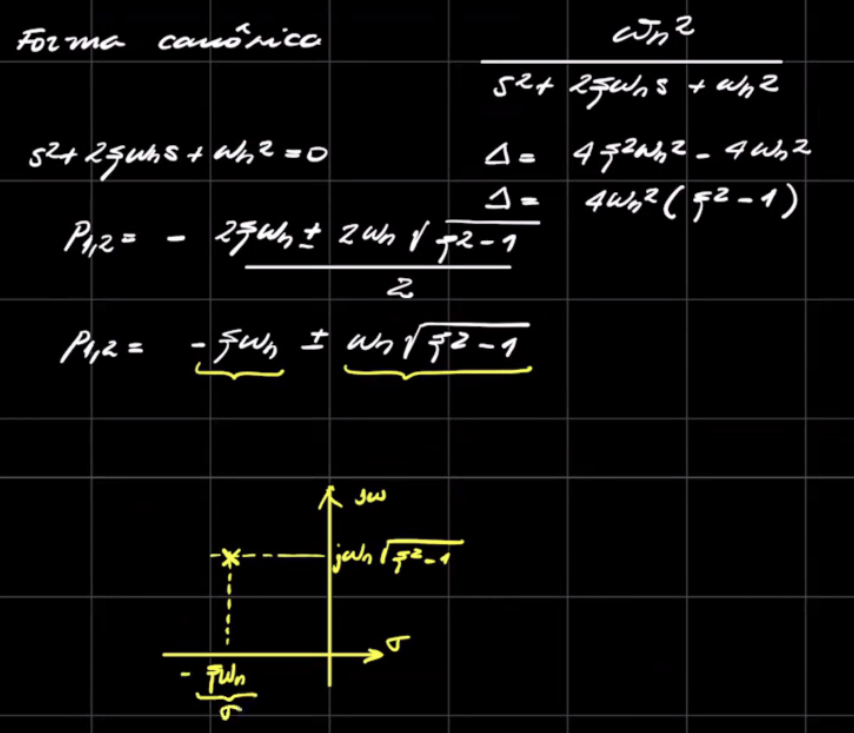 Forma canônica
ωn²
s² + 2ξωns + ωn²
s² + 2ξωns + ωn² = 0
Δ = 4ξ²ωn² - 4ωn²
Δ = 4ωn²(ξ² - 1)
P1,2 = - 2ξωn ± 2ωn√ξ² - 1
2
P1,2 = -ξωn ± ωn√ξ² - 1
jω
jωn√ξ² - 1
σ
- ξωn
σ